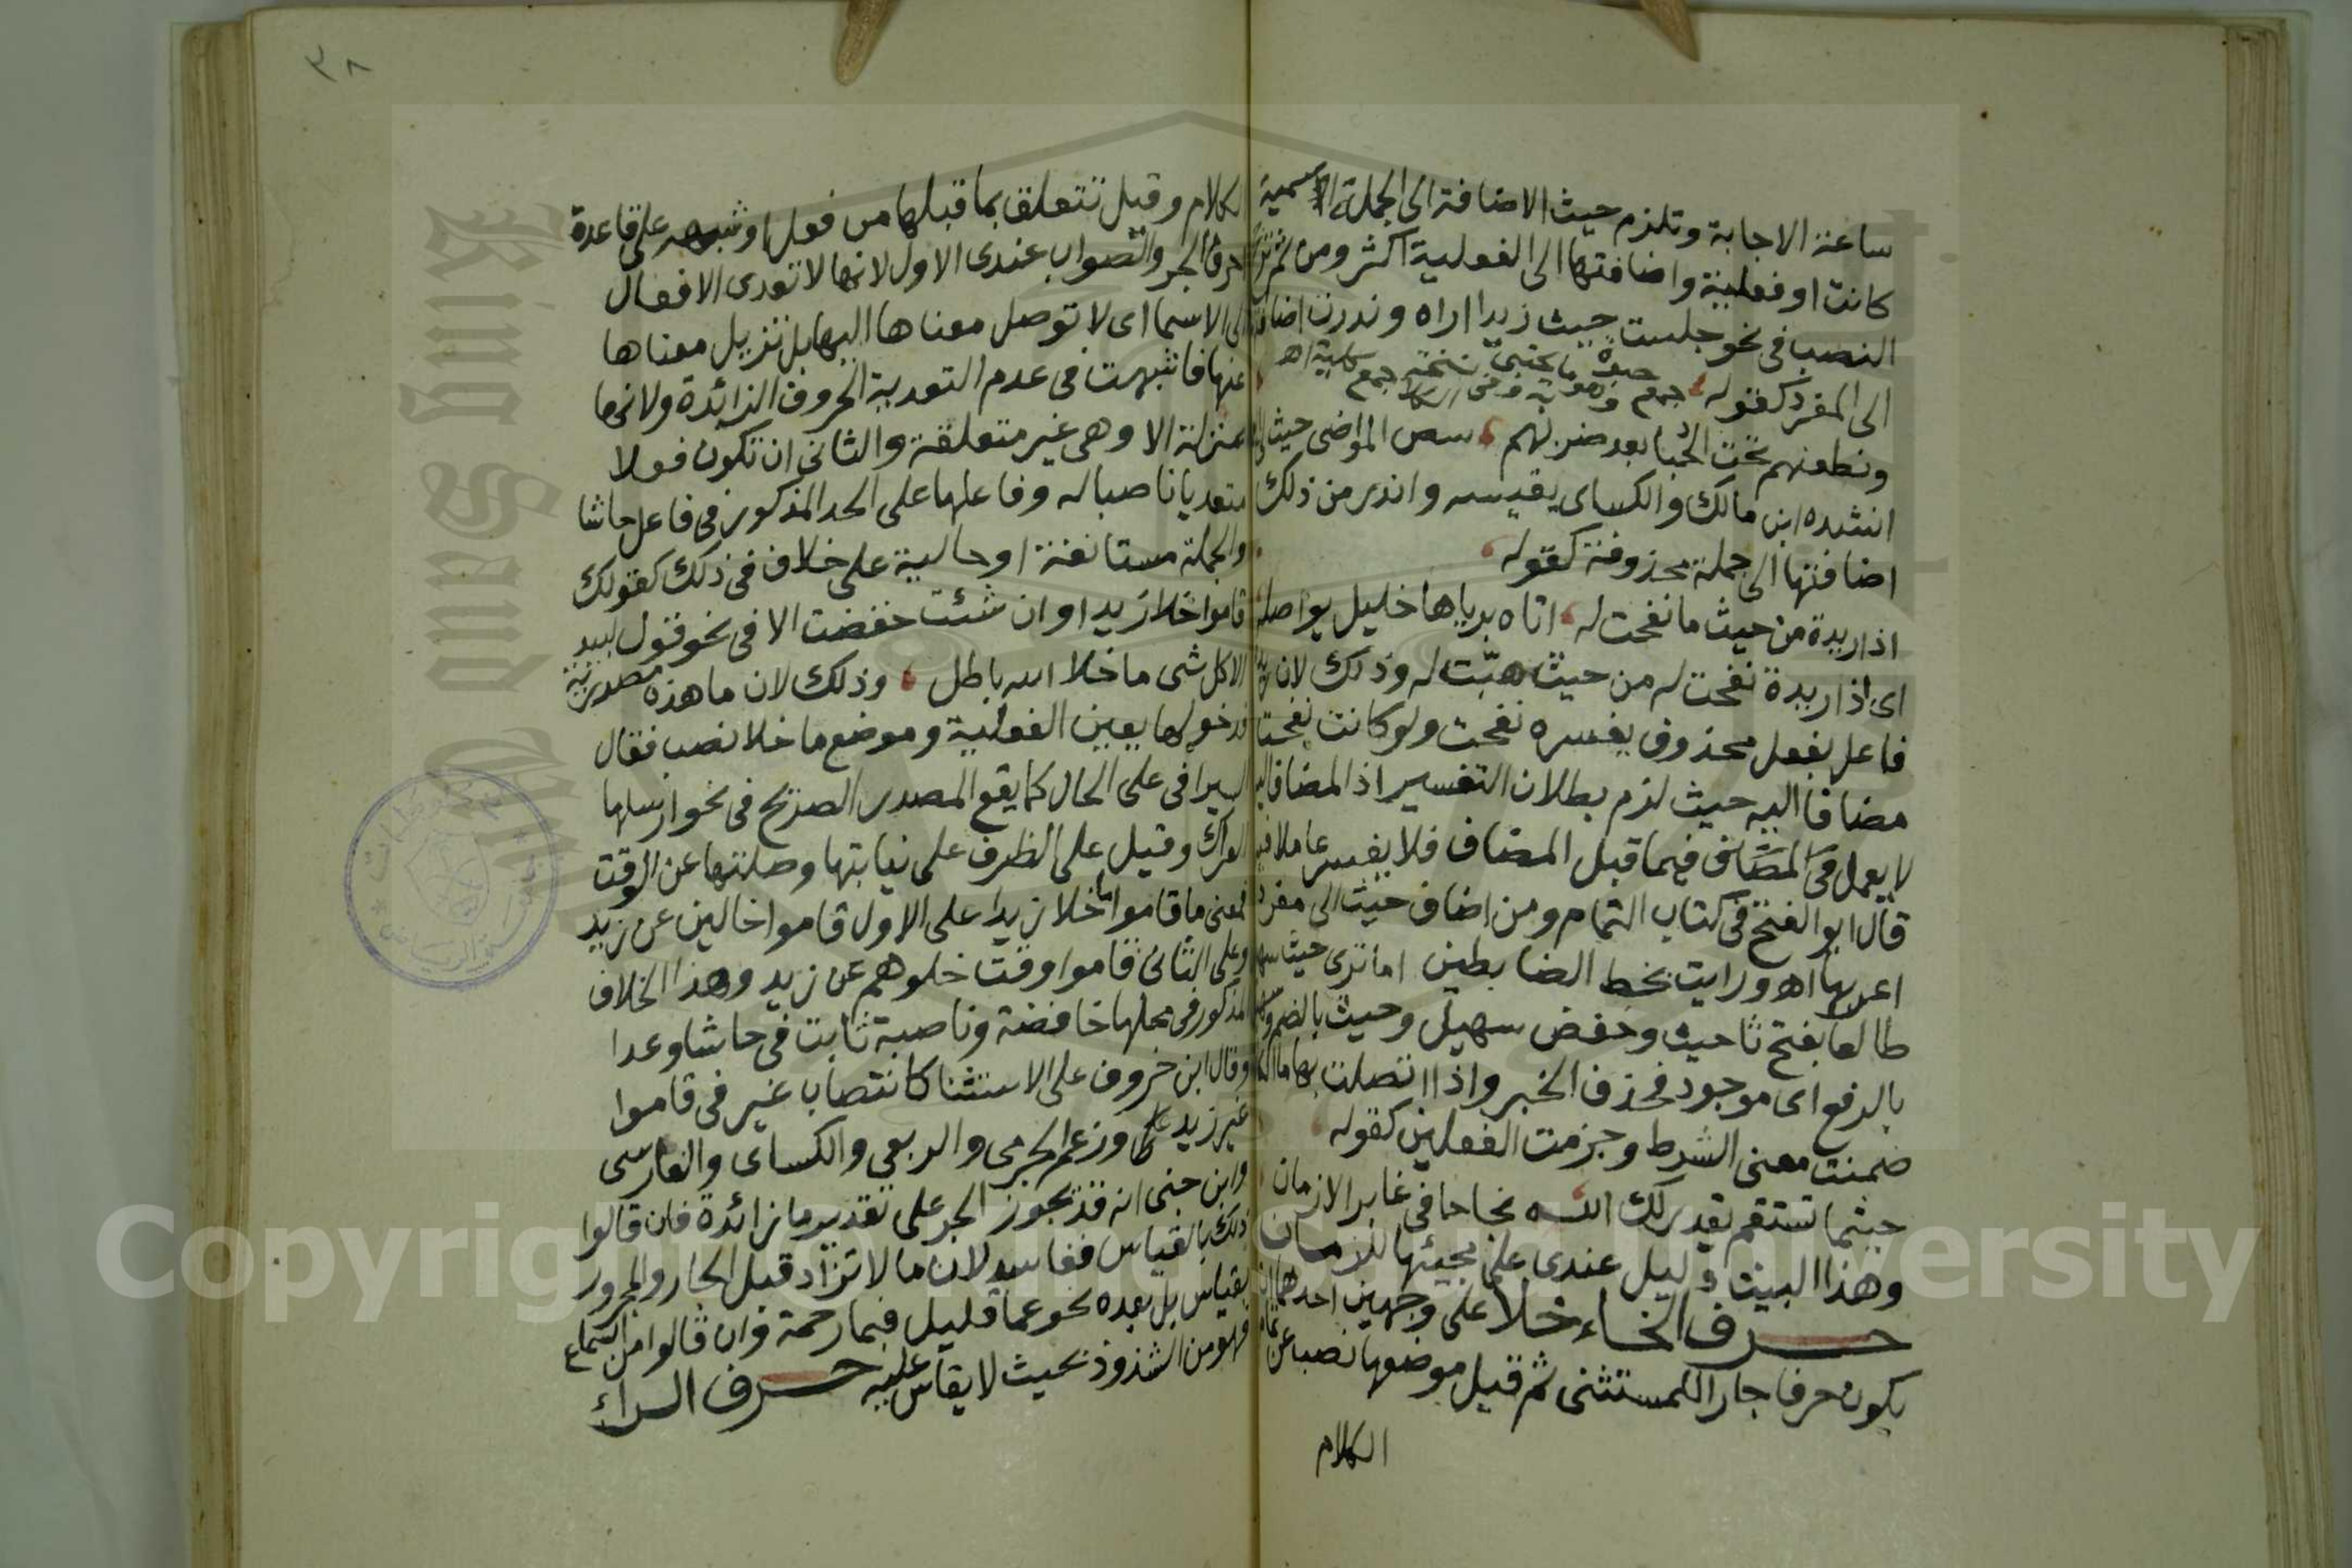 ٣٨
ساعة الاجابة وتلزم حيث الاضافة الى الجملة الاسمية
كانت او فعلية واضافتها الى الفعلية اكثر ومن ثم
النصب فى نحو جلست حيث زيدا اراه وندرت اضافتها
الى المفرد كقوله
ونطعنهم تحت الحبا بعد ضربهم المواضى حيث
انشده ابن مالك والكساى يقيسه واندر من ذلك
اضافتها الى جملة محذوفة كقوله
اذا ريدة من حيث ما نفحت له اتاه برياها خليل يواصله
اى اذا ريدة نفحت له من حيث هبّت له وذلك لان
فاعل بفعل محذوف يفسره نفحت ولو كانت نفحت
مضافا اليه حيث لزم بطلان التفسير اذ المضاف اليه
لا يعمل فى المضاف فيما قبل المضاف فلا يفسر عاملا فيه
قال ابو الفتح فى كتاب التمام ومن اضاف حيث الى مفرد
اعربها اه ورايت بخط الضابطين اما ترى حيث سهيل
طالعا بفتح ثا حيث وخفض سهيل وحيث بالضم وسهيل
بالرفع اى موجود فحذف الخبر واذا اتصلت بها ما الكافة
ضمنت معنى الشرط وجزمت الفعلين كقوله
حيثما تستقم يقدر لك الله نجاحا فى غابر الازمان
وهذا البيت دليل عندى على مجيئها للزمان
حرف الخاء خلا على وجهين احدهما ان
يكون حرفا جارا للمستثنى ثم قيل موضعها نصب عن تمام
الكلام
الكلام وقيل تتعلق بما قبلها من فعل او شبهه على قاعدة
احرف الجر والصواب عندى الاول لانها لا تعدى الافعال
الى الاسما اى لا توصل معناها اليها بل تزيل معناها
عنها فاشبهت فى عدم التعدية الحروف الزائدة ولانها
بمنزلة الا وهى غير متعلقة والثانى ان تكون فعلا
متعديا ناصبا له وفاعلها على الحد المذكور فى فاعل حاشا
والجملة مستانفة او حالية على خلاف فى ذلك كقولك
قاموا خلا زيدا وان شئت خفضت الا فى نحو قول لبيد
الا كل شى ما خلا الله باطل وذلك لان ما هذه مصدرية
فدخولها يعين الفعلية وموضع ما خلا نصب فقال
السيرافى على الحال كما يقع المصدر الصريح فى نحو ارسلها
العراك وقيل على الظرف على نيابتها وصلتها عن الوقت
فمعنى ما قاموا ما خلا زيدا على الاول قاموا خالين عن زيد
وعلى الثانى قاموا وقت خلوهم عن زيد وهذا الخلاف
المذكور فى محلها خافضة وناصبة ثابت فى حاشا وعدا
وقال ابن خروف على الاستثنا كانتصاب غير فى قاموا
غير زيد وزعم الجرمى والربعى والكساى والفارسى
وابن جنى انه قد يجوز الجر على تقدير ما زائدة فان قالوا
ذلك بالقياس ففاسد لان ما لا تزاد قبل الجار والمجرور
بقياس بل بعده نحو عما قليل فبما رحمة وان قالوا من السماع
فهو من الشذوذ بحيث لا يقاس عليه حرف الراء